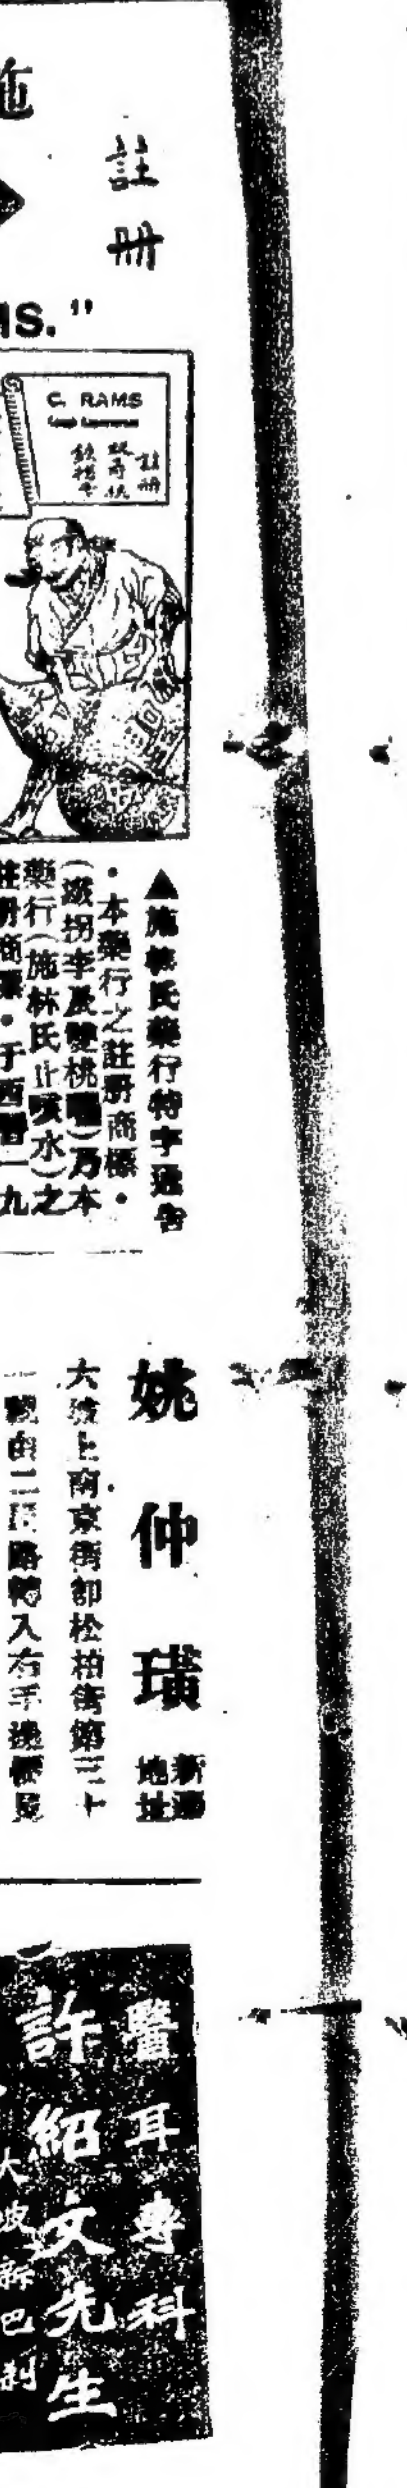 施
註册
MS."
C. RAMS
註册
▲施林氏藥行特字通告
・本藥行之註册商標・
(鐵拐李及雙桃嘜)乃本
藥行(施林氏止咳水)之
註册商票・于西曆一九
姚仲璜
新遷地址
大坡上南京街卽松柏街第三十
一號由二馬路轉入右手邊便是
醫耳專科
許紹文先生
大坡新巴刹